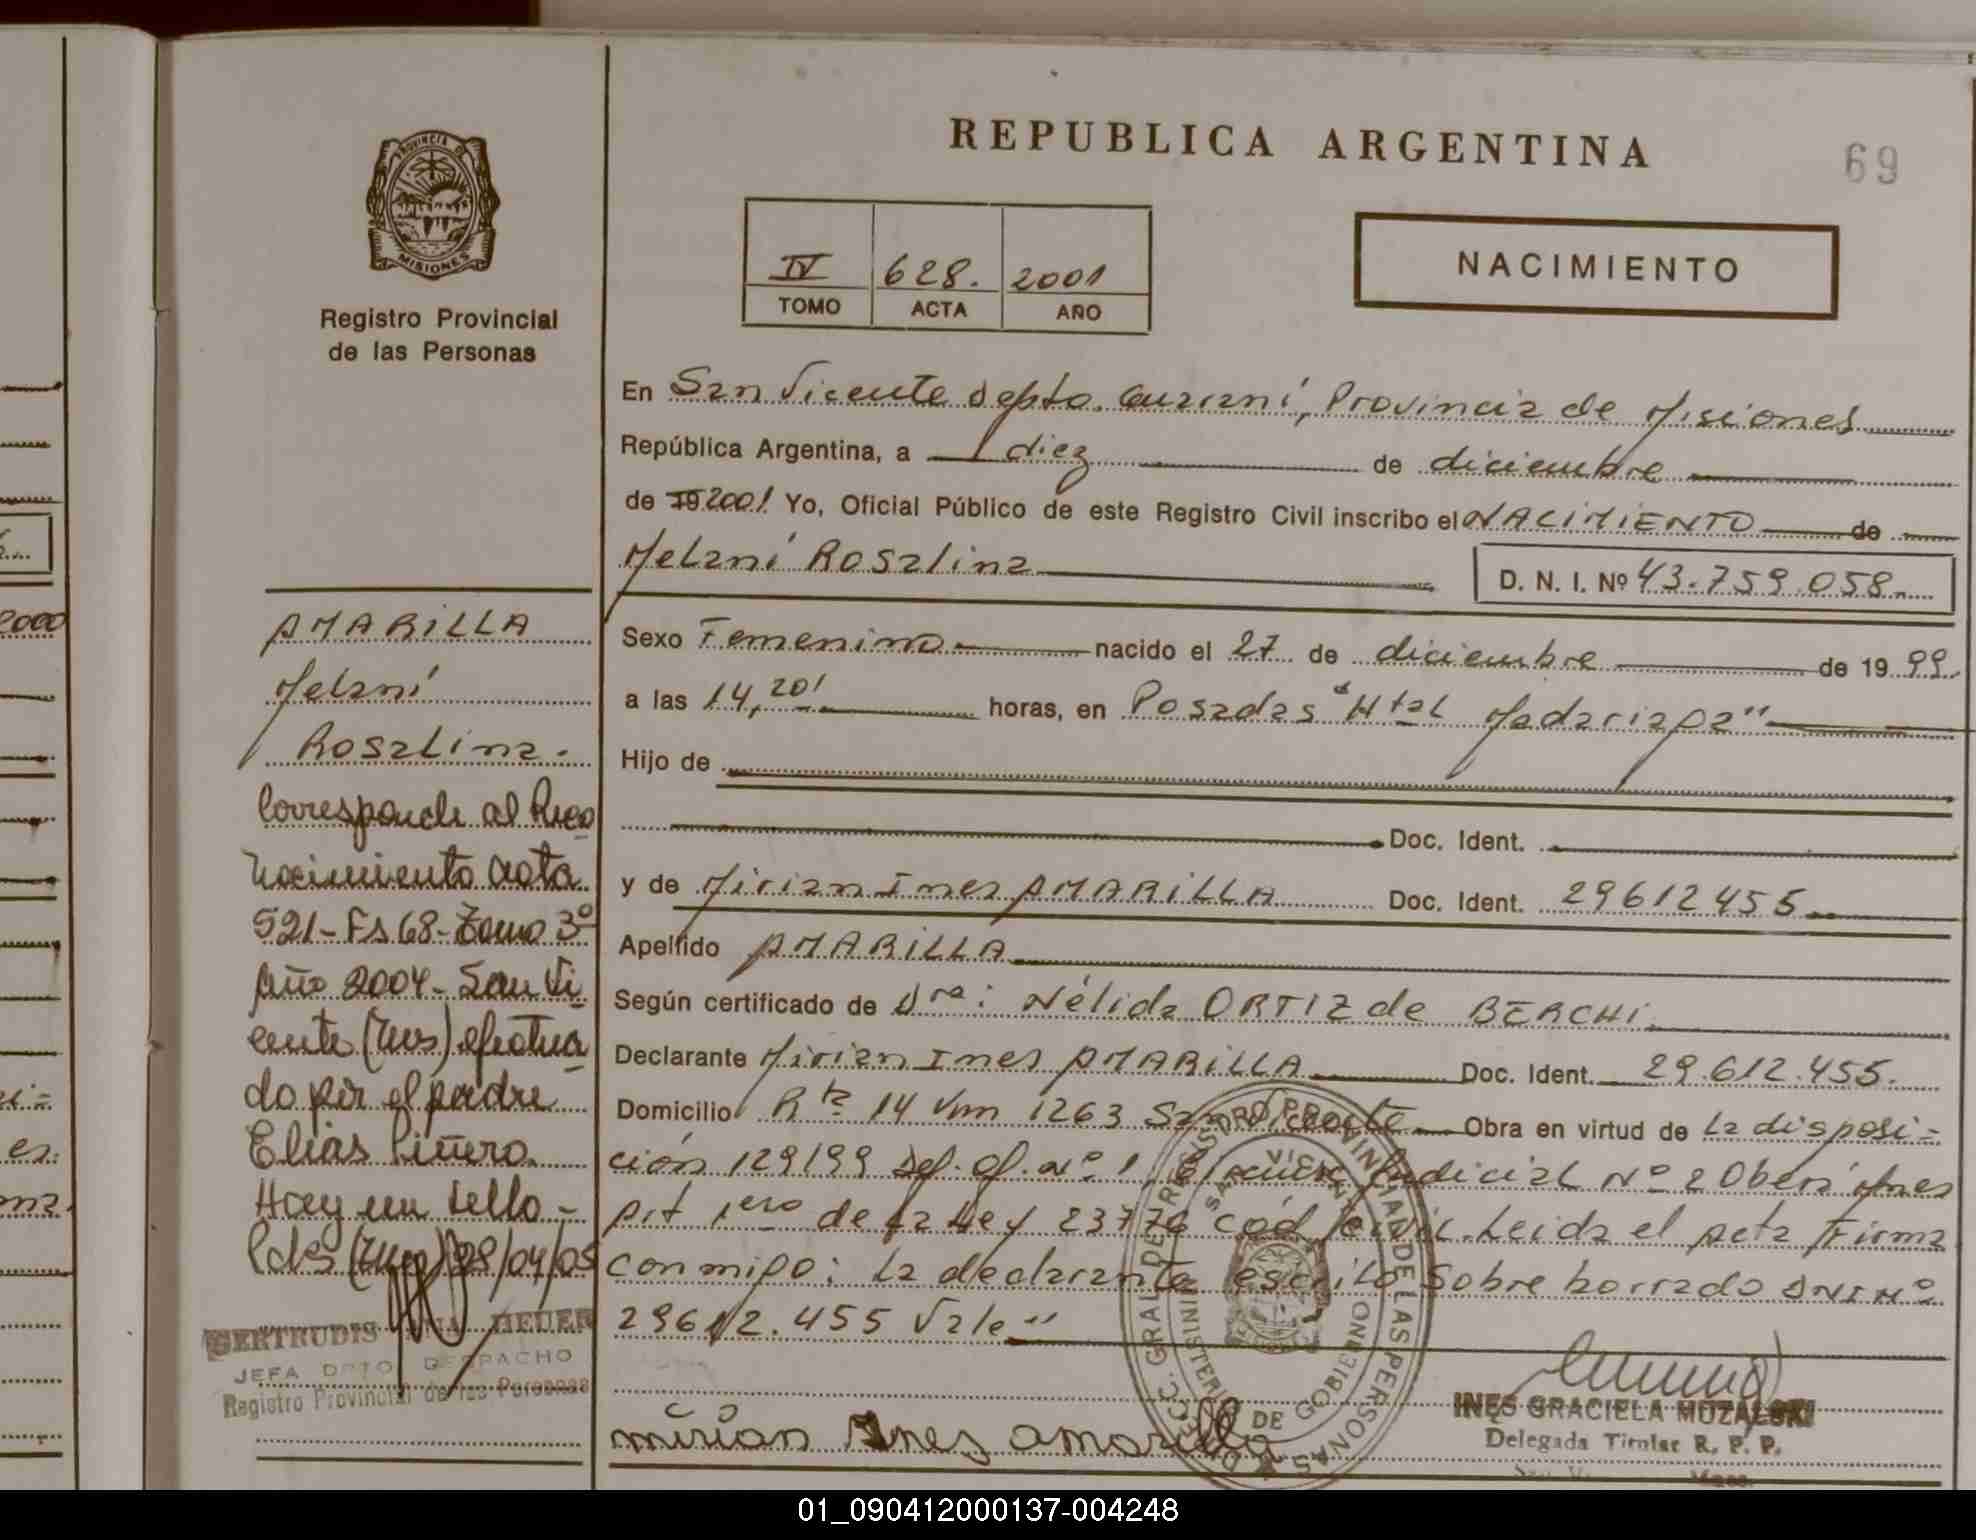 REPUBLICA ARGENTINA
69
PROVINCIA DE
MISIONES
Registro Provincial
de las Personas
IV 628. 2001
TOMO ACTA AÑO
NACIMIENTO
En San Vicente Depto. Guaraní, Provincia de Misiones
República Argentina, a diez de diciembre
de 19 2001 Yo, Oficial Público de este Registro Civil inscribo el NACIMIENTO de
Melaní Rosalina
D. N. I. Nº 43.759.058
Sexo Femenino nacido el 27 de diciembre de 19 99
a las 14,20' horas, en Posadas "Htal Madariaga"
Hijo de
Doc. Ident.
y de Mirian Ines AMARILLA Doc. Ident. 29612455
Apellido AMARILLA
Según certificado de Dra: Nélida ORTIZ de BERCHI
Declarante Mirian Ines AMARILLA Doc. Ident. 29.612.455.
Domicilio Rta 14 Km 1263 San Vicente Obra en virtud de La disposi=
ción 129/99 Def. of. Nº 1 Judicial Nº 2 Oberá Mnes
Art 1ero de La Ley 23776 cód civil. Leida el Acta Firma
conmigo: La declarante escrito sobre borrado DNI Nº
29612.455 Vale"
mirian Ines amarilla
INES GRACIELA MUZALSKI
Delegada Titular R. P. P.
AMARILLA
Melaní
Rosalina.
Corresponde al Reco
nocimiento acta
521-Fs 68-Tomo 3º
Año 2004-San Vi
cente (Mnes) efectua
do por el padre
Elias Piñero.
Hay un sello-
Pdas (Mnes) 28/04/05
GERTRUDIS HEUER
JEFA DPTO DESPACHO
Registro Provincial de las Personas
2000
01_090412000137-004248